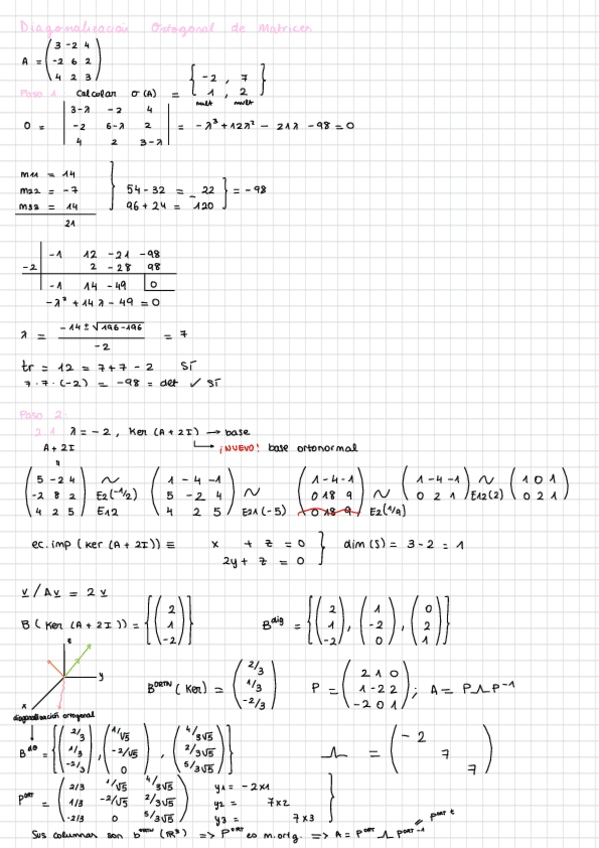 Diagonalización Ortogonal de Matrices
A = ( 3 -2 4 / -2 6 2 / 4 2 3 )
Paso 1: Calcular σ(A) = { -2 , 7 / 1 , 2 }
mult mult
0 = | 3-λ -2 4 / -2 6-λ 2 / 4 2 3-λ | = -λ³ + 12λ² - 21λ - 98 = 0
m11 = 14
m22 = -7 } 54 - 32 = 22 } = -98
m33 = 14 96 + 24 = 120
21
-1 12 -21 -98
-2 2 -28 98
-1 14 -49 0
-λ² + 14λ - 49 = 0
λ = (-14 ± √196-196) / -2 = 7
tr = 12 = 7 + 7 - 2 SÍ
7 · 7 · (-2) = -98 = det ✓ SÍ
Paso 2:
2.1 λ = -2 , Ker (A + 2I) → base
A + 2I ↳ ¡NUEVO! base ortonormal
( 5 -2 4 / -2 8 2 / 4 2 5 ) ~ E2(-1/2) E12 ( 1 -4 -1 / 5 -2 4 / 4 2 5 ) ~ E21(-5) ( 1 -4 -1 / 0 18 9 / 0 18 9 ) ~ E2(1/9) ( 1 -4 -1 / 0 2 1 ) ~ E12(2) ( 1 0 1 / 0 2 1 )
ec. imp (Ker (A + 2I)) ≡ x + z = 0 } dim (S) = 3 - 2 = 1
2y + z = 0
v / Av = 2 v
B ( Ker (A + 2I)) = { ( 2 / 1 / -2 ) } B^diag = { ( 2 / 1 / -2 ) , ( 1 / -2 / 0 ) , ( 0 / 2 / 1 ) }
z
y
x
B^ORTN (Ker) = ( 2/3 / 1/3 / -2/3 ) P = ( 2 1 0 / 1 -2 2 / -2 0 1 ) ; A = P Λ P⁻¹
diagonalización ortogonal
B^do = { ( 2/3 / 1/3 / -2/3 ) , ( 1/√5 / -2/√5 / 0 ) , ( 4/3√5 / 2/3√5 / 5/3√5 ) } Λ = ( -2 / 7 / 7 )
P^ORT = ( 2/3 1/√5 4/3√5 / 1/3 -2/√5 2/3√5 / -2/3 0 5/3√5 ) y1 = -2x1
y2 = 7x2
y3 = 7x3
Sus columnas son b^ORTN (R³) => P^ORT es m. ortg. => A = P^ORT Λ P^ORT -1
P^ORT t